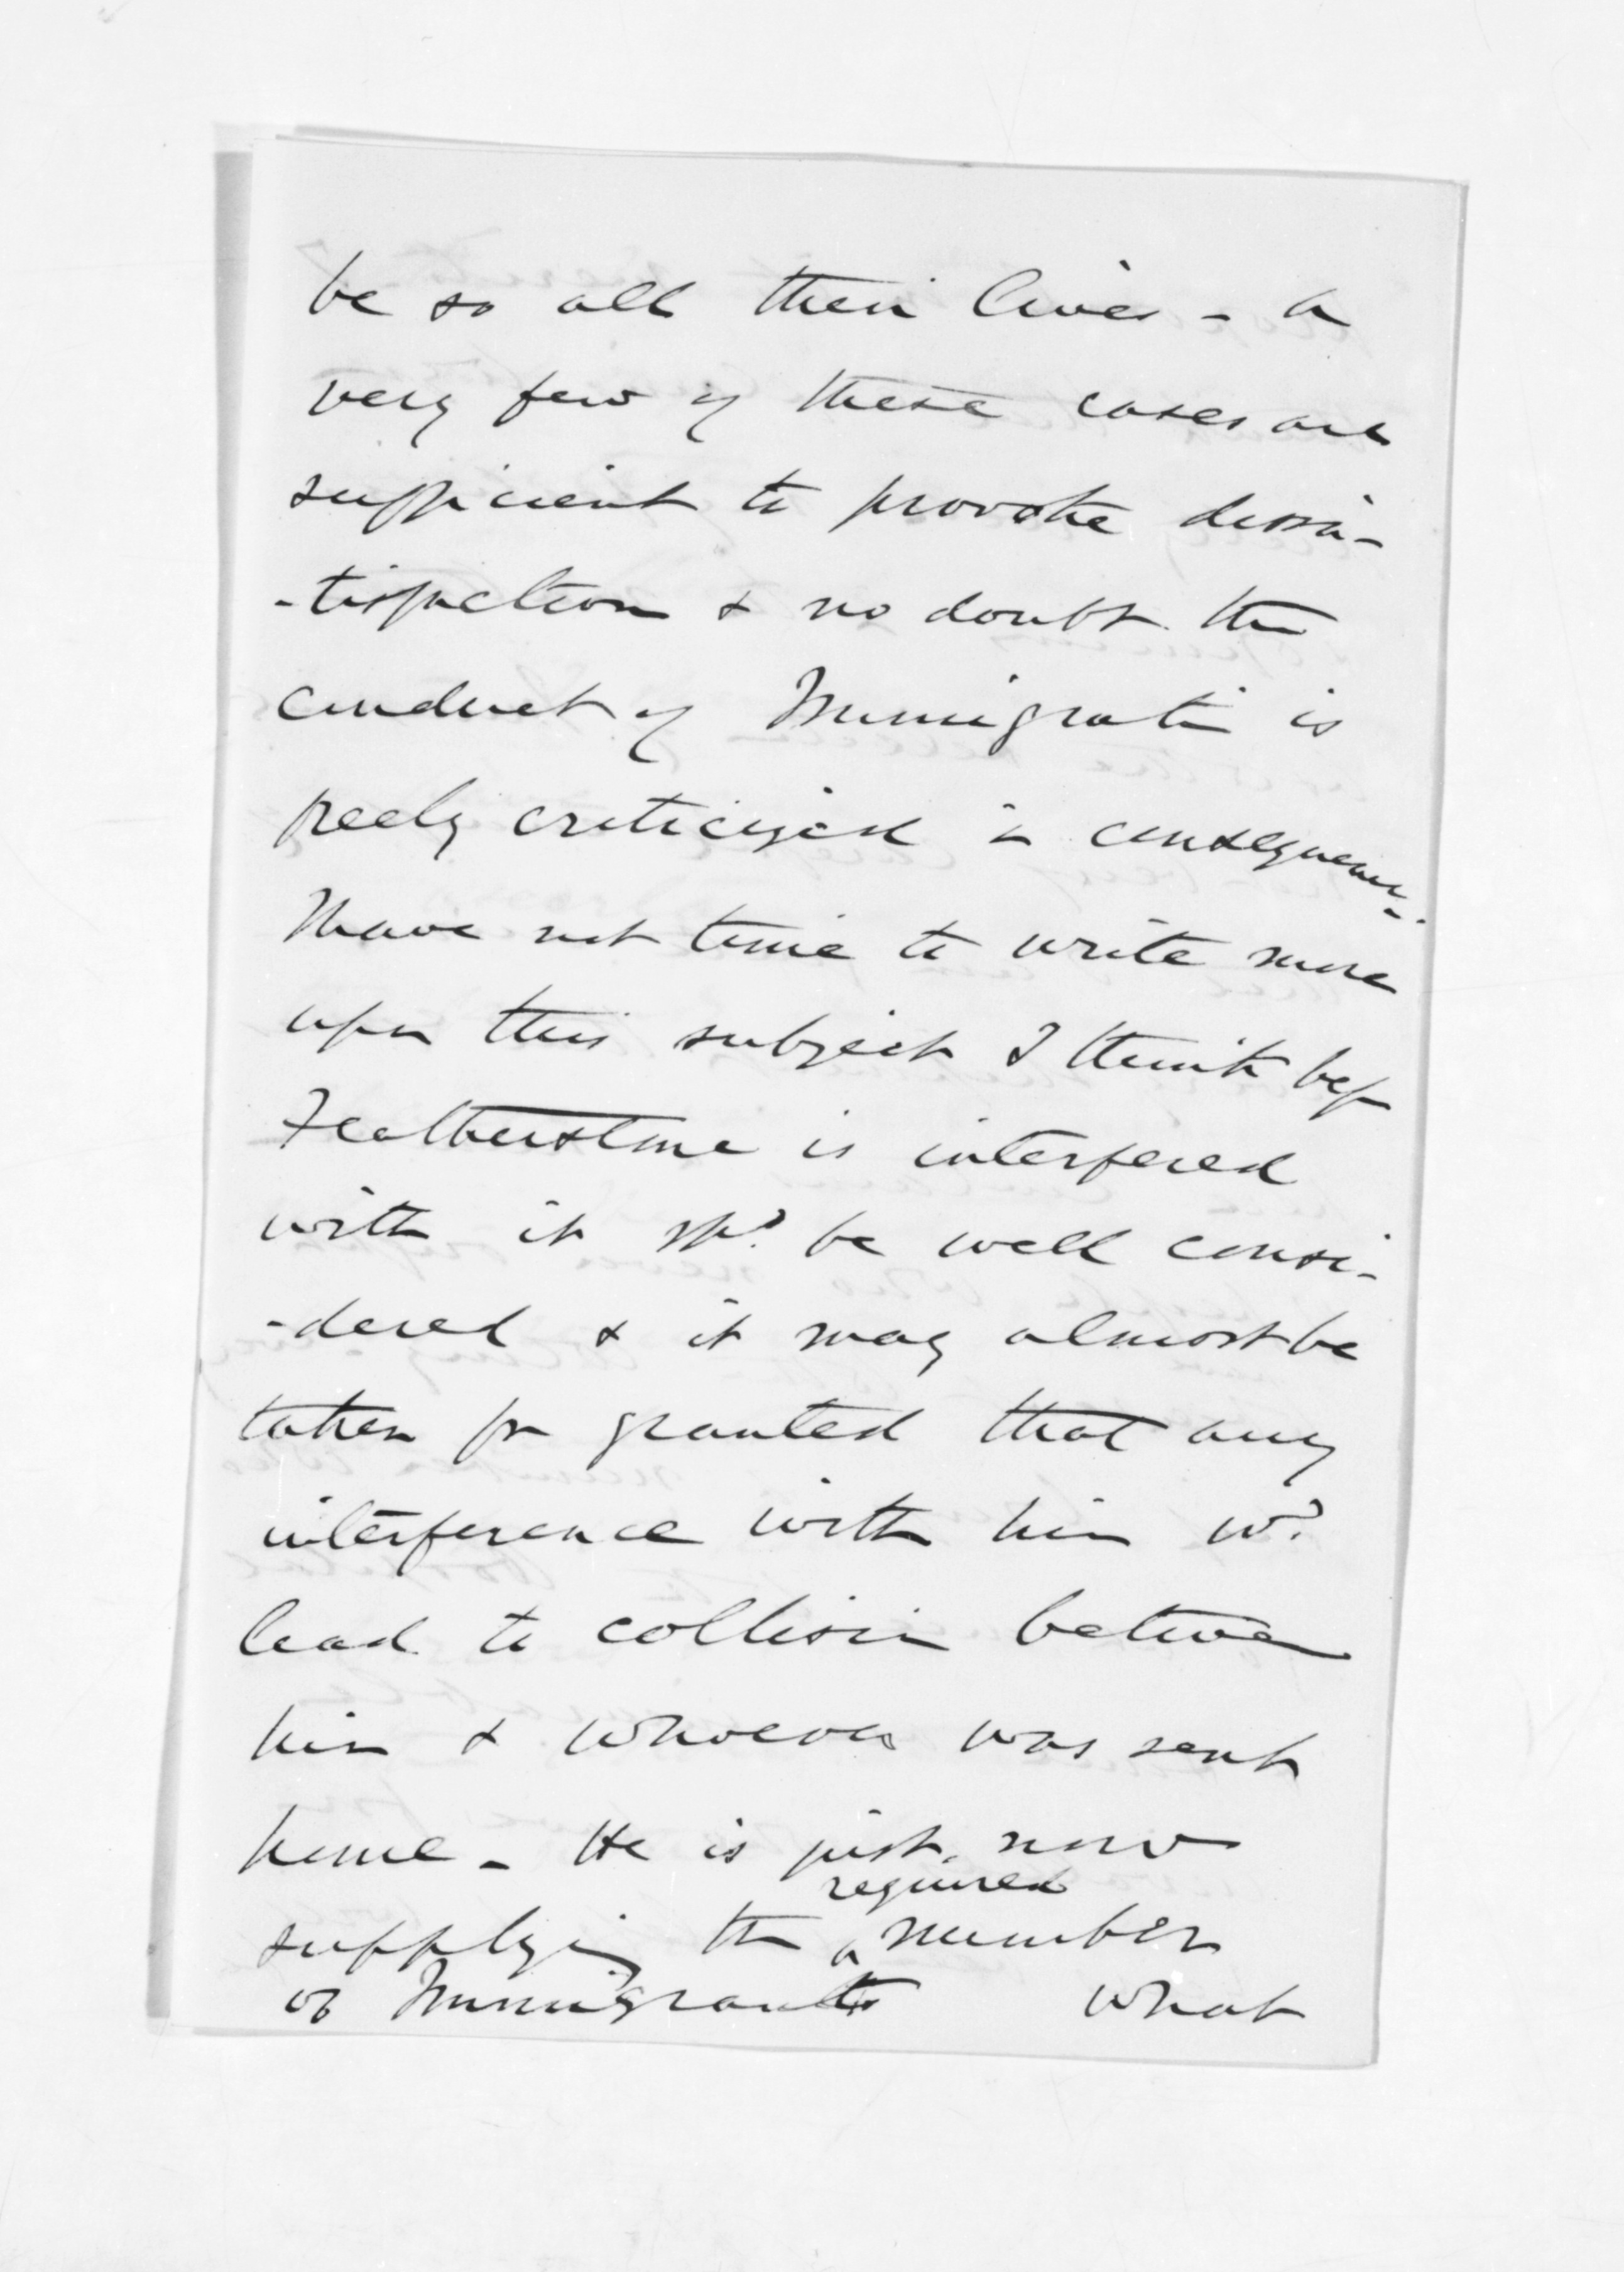 be so all their lives - a
very few of these cases are
sufficient to provoke dissa-
-tisfaction & no doubt the
conduct of Immigratn is
freely criticized in consequence -
I have not time to write more
upon this subject I think bef
Featherstone is interfered
with it shd. be well consi-
-dered & it may almost be
taken for granted that any
interference with him wd.
lead to collision between
him & whoever was sent
home - He is just now
required
supplying the ^ number
of Immigrants what